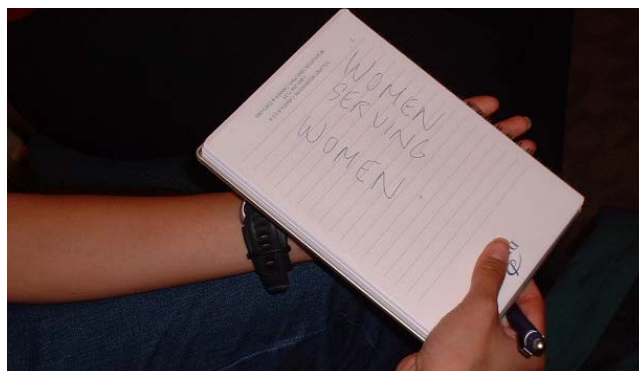 WOMEN
SERVING
WOMEN